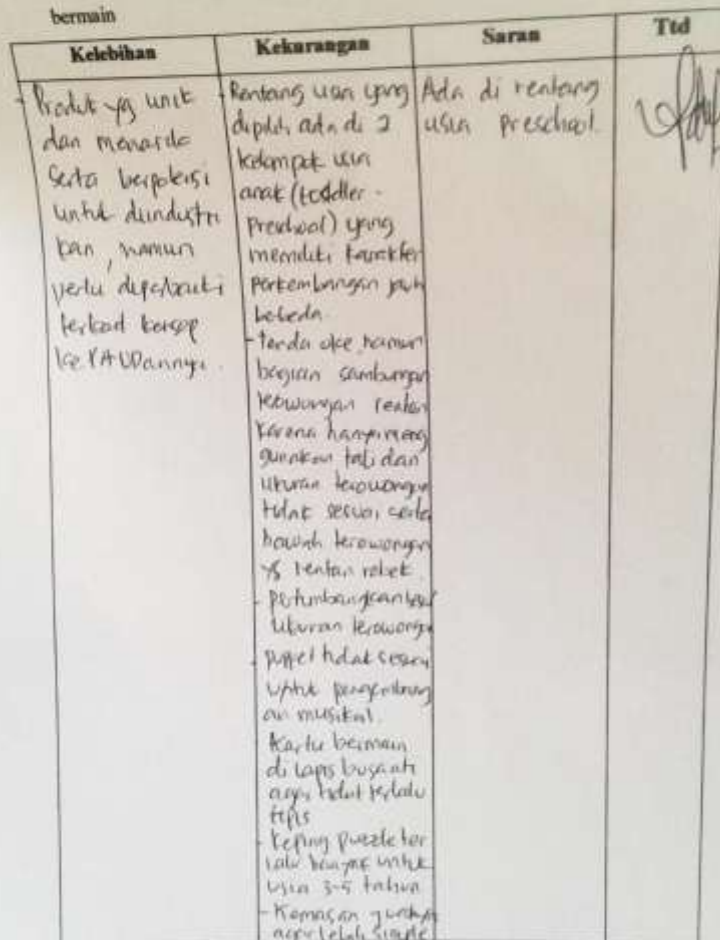 bermain
Kelebihan
Kekurangan
Saran
Ttd
- Produk yg unik
dan menarik
serta berpotensi
untuk diindustri
kan, namun
perlu diperbaiki
terkait konsep
ke PAUDannya.
- Rentang usia yang
dipilih ada di 2
kelompok usia
anak (toddler -
Preschool) yang
memiliki karakter
perkembangan jauh
berbeda.
- tenda oke, namun
bagian sambungan
terowongan rentan
karena hanya meng
gunakan tali dan
ukuran terowongan
tidak sesuai serta
bawah terowongan
yg rentan robek.
- pertimbangkan
ukuran terowongan
- puppet tidak sesuai
untuk pengembang
an musikal.
Kartu bermain
di lapis busa
agar tidak terlalu
tipis
- Keping puzzle ter
lalu banyak untuk
usia 3-5 tahun
- Kemasan
agar lebih simple
Ada di rentang
usia preschool.